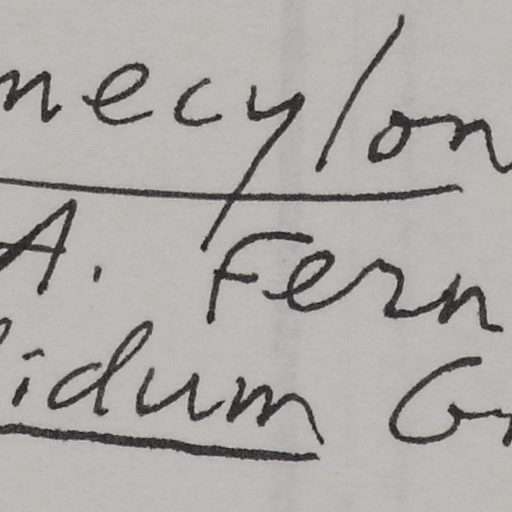 mecylon
A. Fern
idum Gr